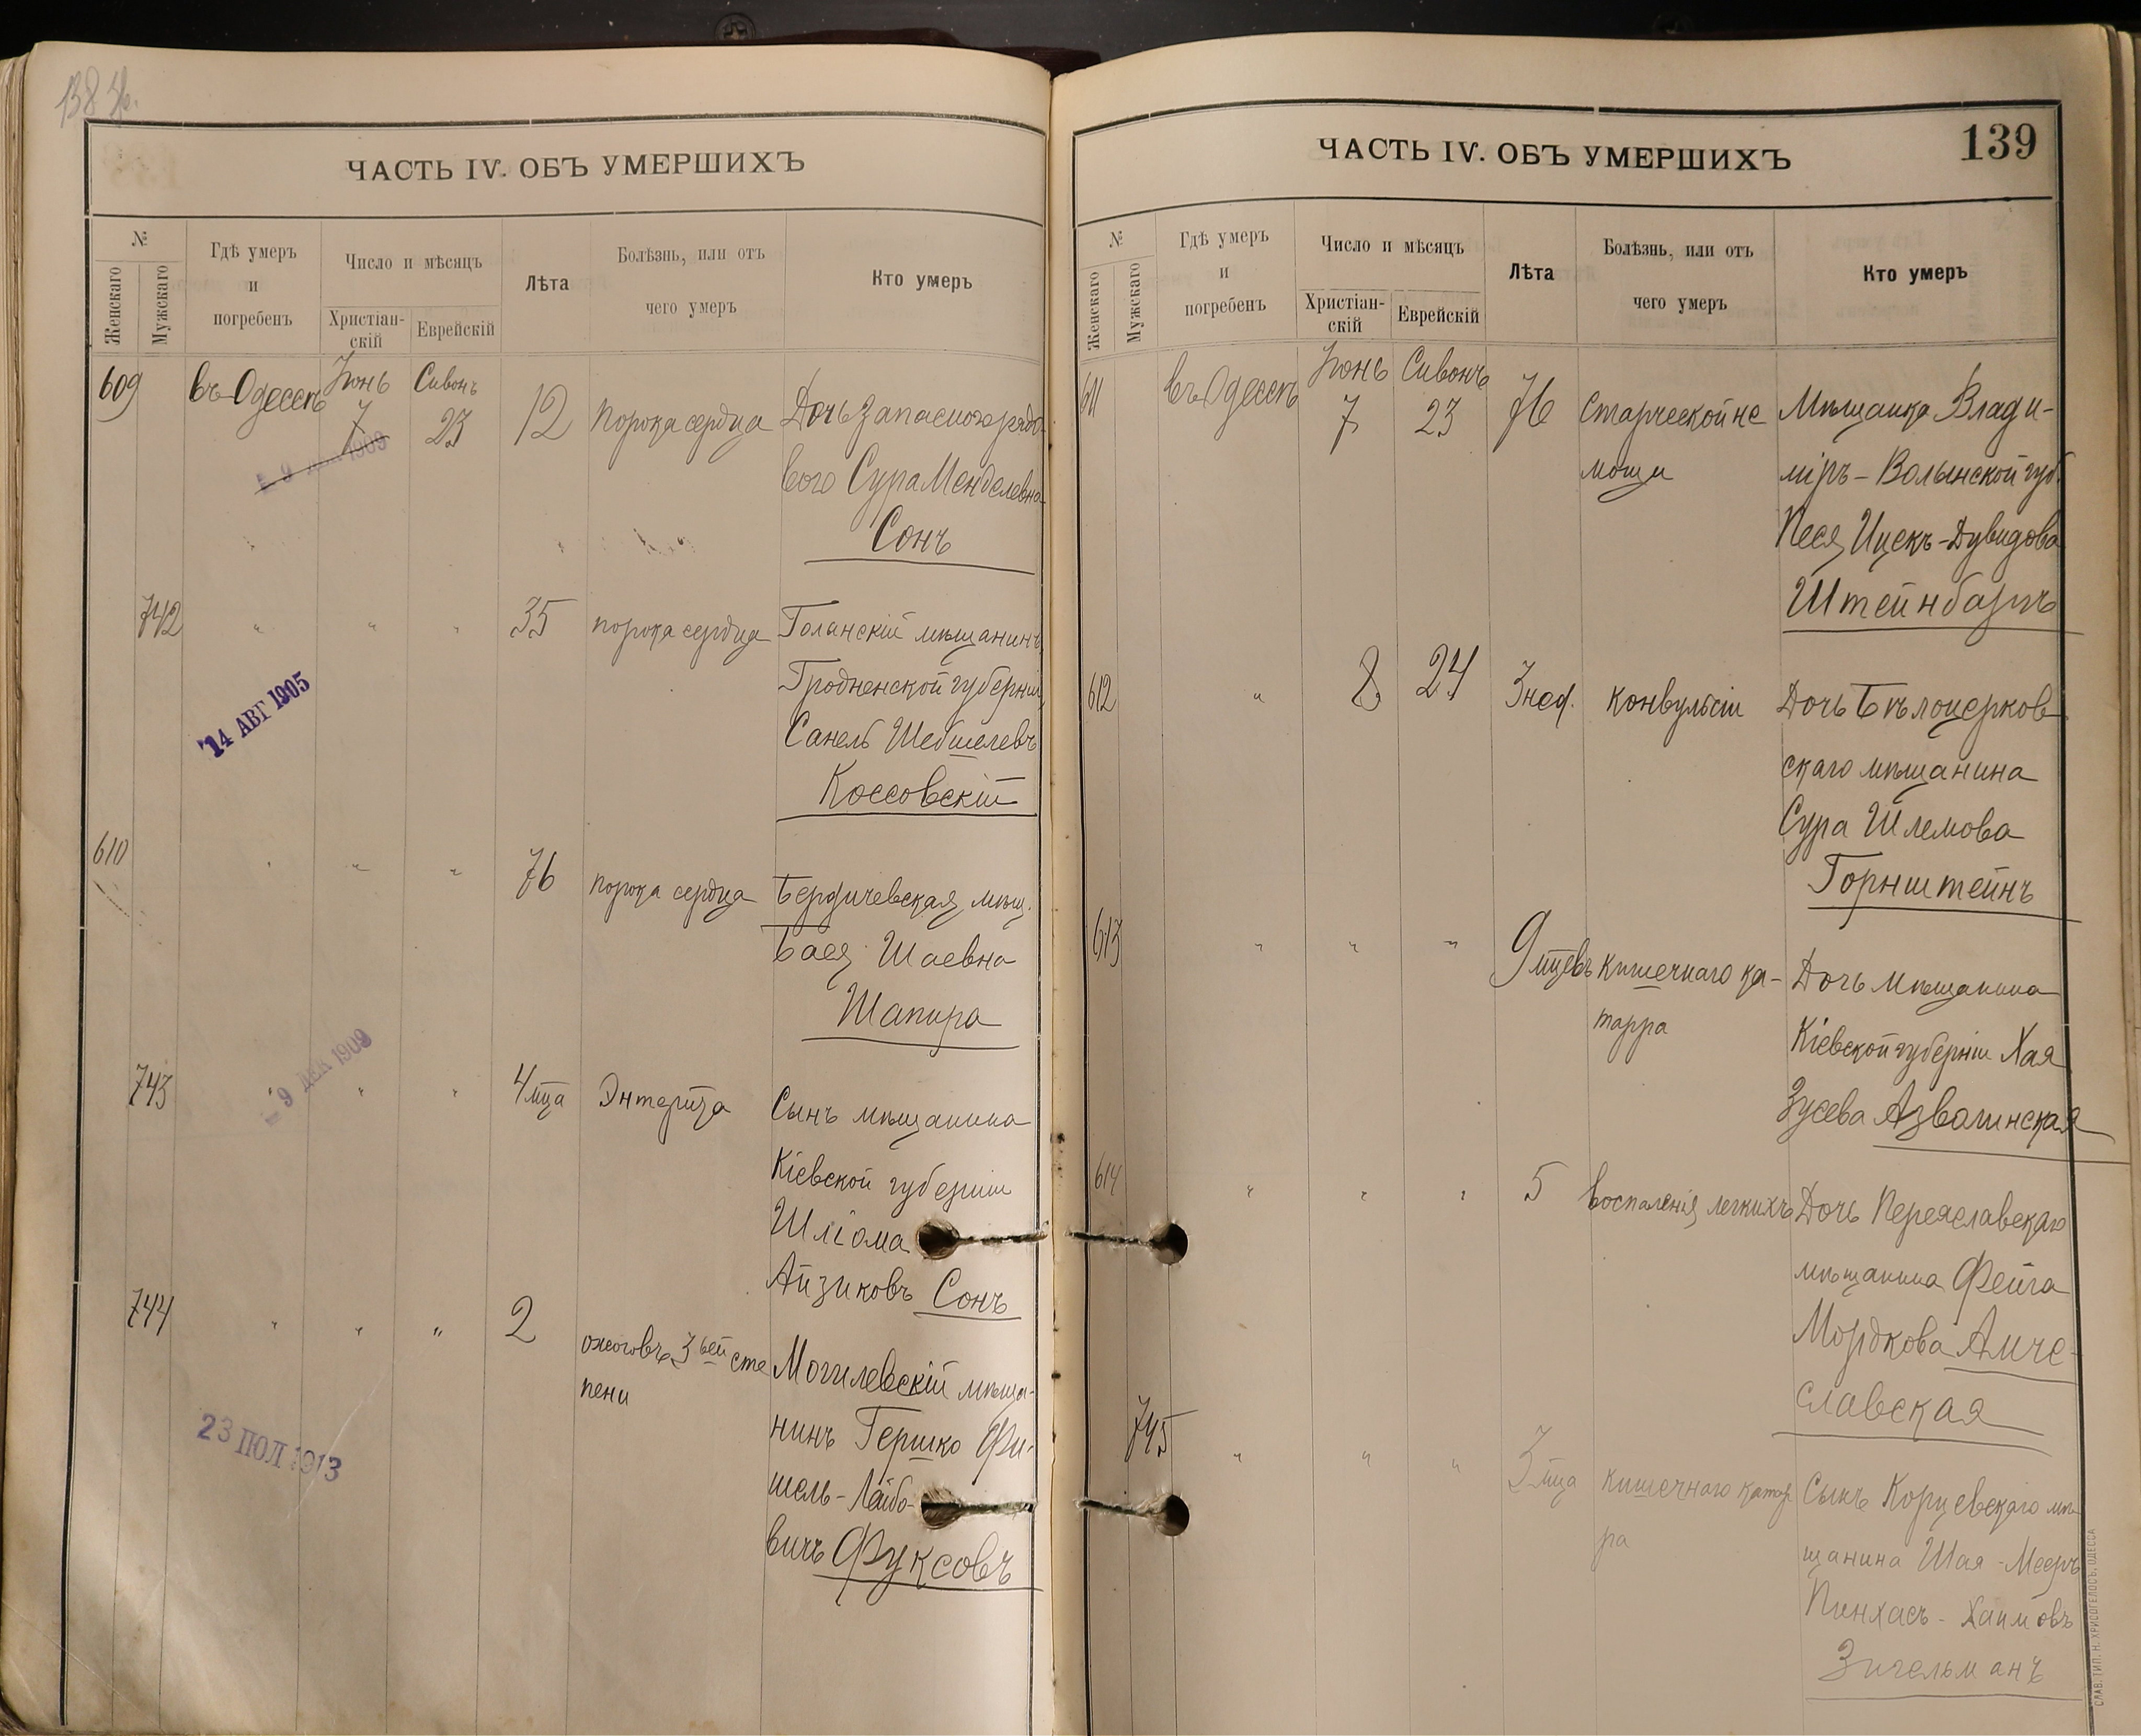 138 об.
ЧАСТЬ IV. ОБЪ УМЕРШИХЪ
№
Женскаго
Мужскаго
Гдѣ умеръ
и
погребенъ
Число и мѣсяцъ
Христіан-
скій
Еврейскій
Лѣта
Болѣзнь, или отъ
чего умеръ
Кто умеръ
609 въ Одессѣ Іюнь 7 Сивонъ 23 12 порока сердца Дочь запасного рядо-
вого Сура Менделевна
Сонъ
742 " " " 35 порока сердца Голанскій мѣщанинъ,
Гродненской губерніи,
Санель Шебшелевъ
Коссовскій
14 АВГ 1905
610 " " " 76 порока сердца Бердичевская мѣщ.
Бася Шаевна
Шапира
743 " " " 4 мца Энтерита Сынъ мѣщанина
Кіевской губерніи
Шліома
Айзиковъ Сонъ
9 ДЕК 1909
744 " " " 2 ожоговъ 3ьей сте
пени
Могилевскій мѣща-
нинъ Гершко Фи-
шель-Лейбо-
вичъ Фуксовъ
23 ІЮЛ 1913
139
ЧАСТЬ IV. ОБЪ УМЕРШИХЪ
№
Женскаго
Мужскаго
Гдѣ умеръ
и
погребенъ
Число и мѣсяцъ
Христіан-
скій
Еврейскій
Лѣта
Болѣзнь, или отъ
чего умеръ
Кто умеръ
611 въ Одессѣ Іюнь 7 Сивонъ 23 76 Старческой не
мощи
Мѣщанка Влади-
міръ-Волынской губ.
Песя Ицекъ-Дувидова
Штейнбаргъ
612 " 8 24 3 нед. конвульсіи Дочь Бѣлоцерков-
скаго мѣщанина
Сура Шлемова
Горнштейнъ
613 " " " 9 мцевъ кишечнаго ка-
тарра
Дочь мѣщанина
Кіевской губерніи Хая
Зусева Азвалинская
614 " " " 5 воспаленія легкихъ Дочь Переяславскаго
мѣщанина Фейга
Мордкова Амче-
славская
745 " " " 3 мца кишечнаго катар
ра
Сынъ Корцевскаго мѣ-
щанина Шая-Мееръ
Пинхасъ-Хаимовъ
Зигельманъ
СЛАВ. ТИП. Н. ХРИСОГЕЛОСЪ, ОДЕССА